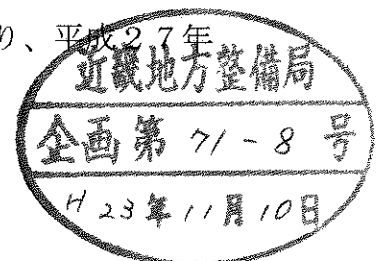 り、平成27年
近畿地方整備局
企画第 71-8 号
H 23年11月10日